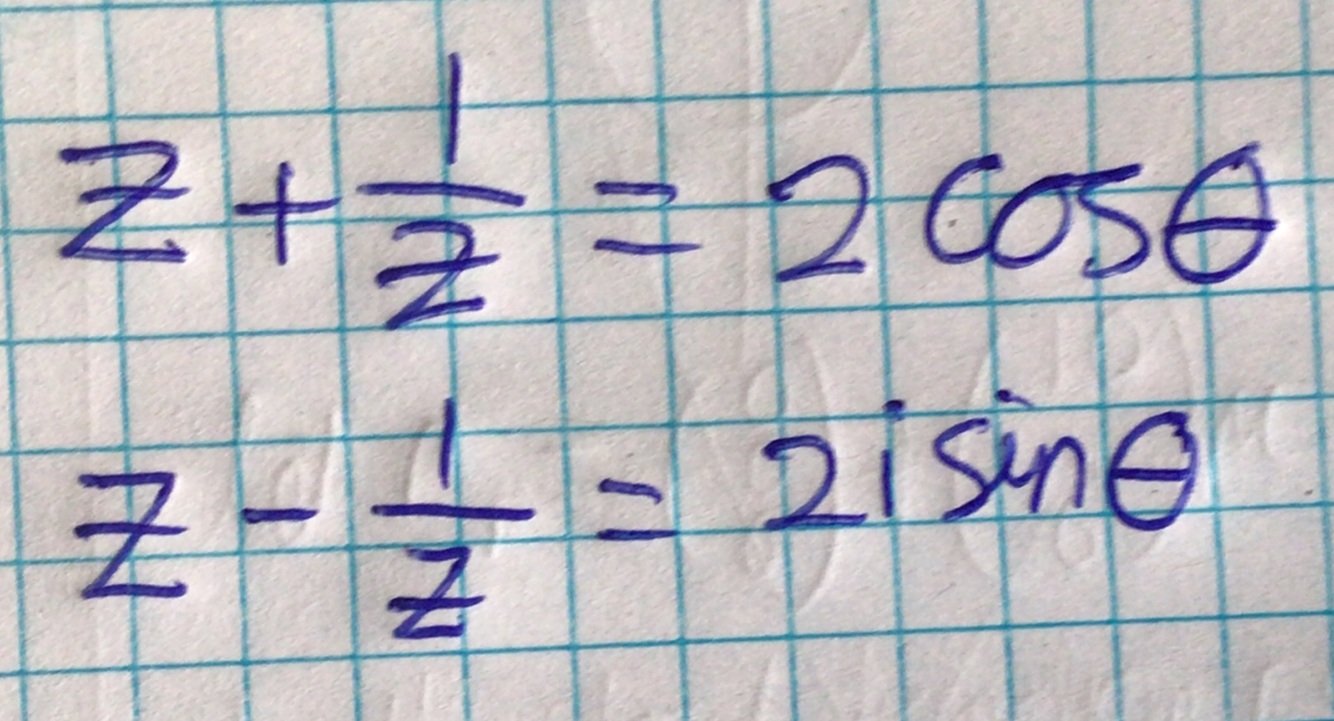 z + 1/z = 2 cosθ
z - 1/z = 2i sinθ